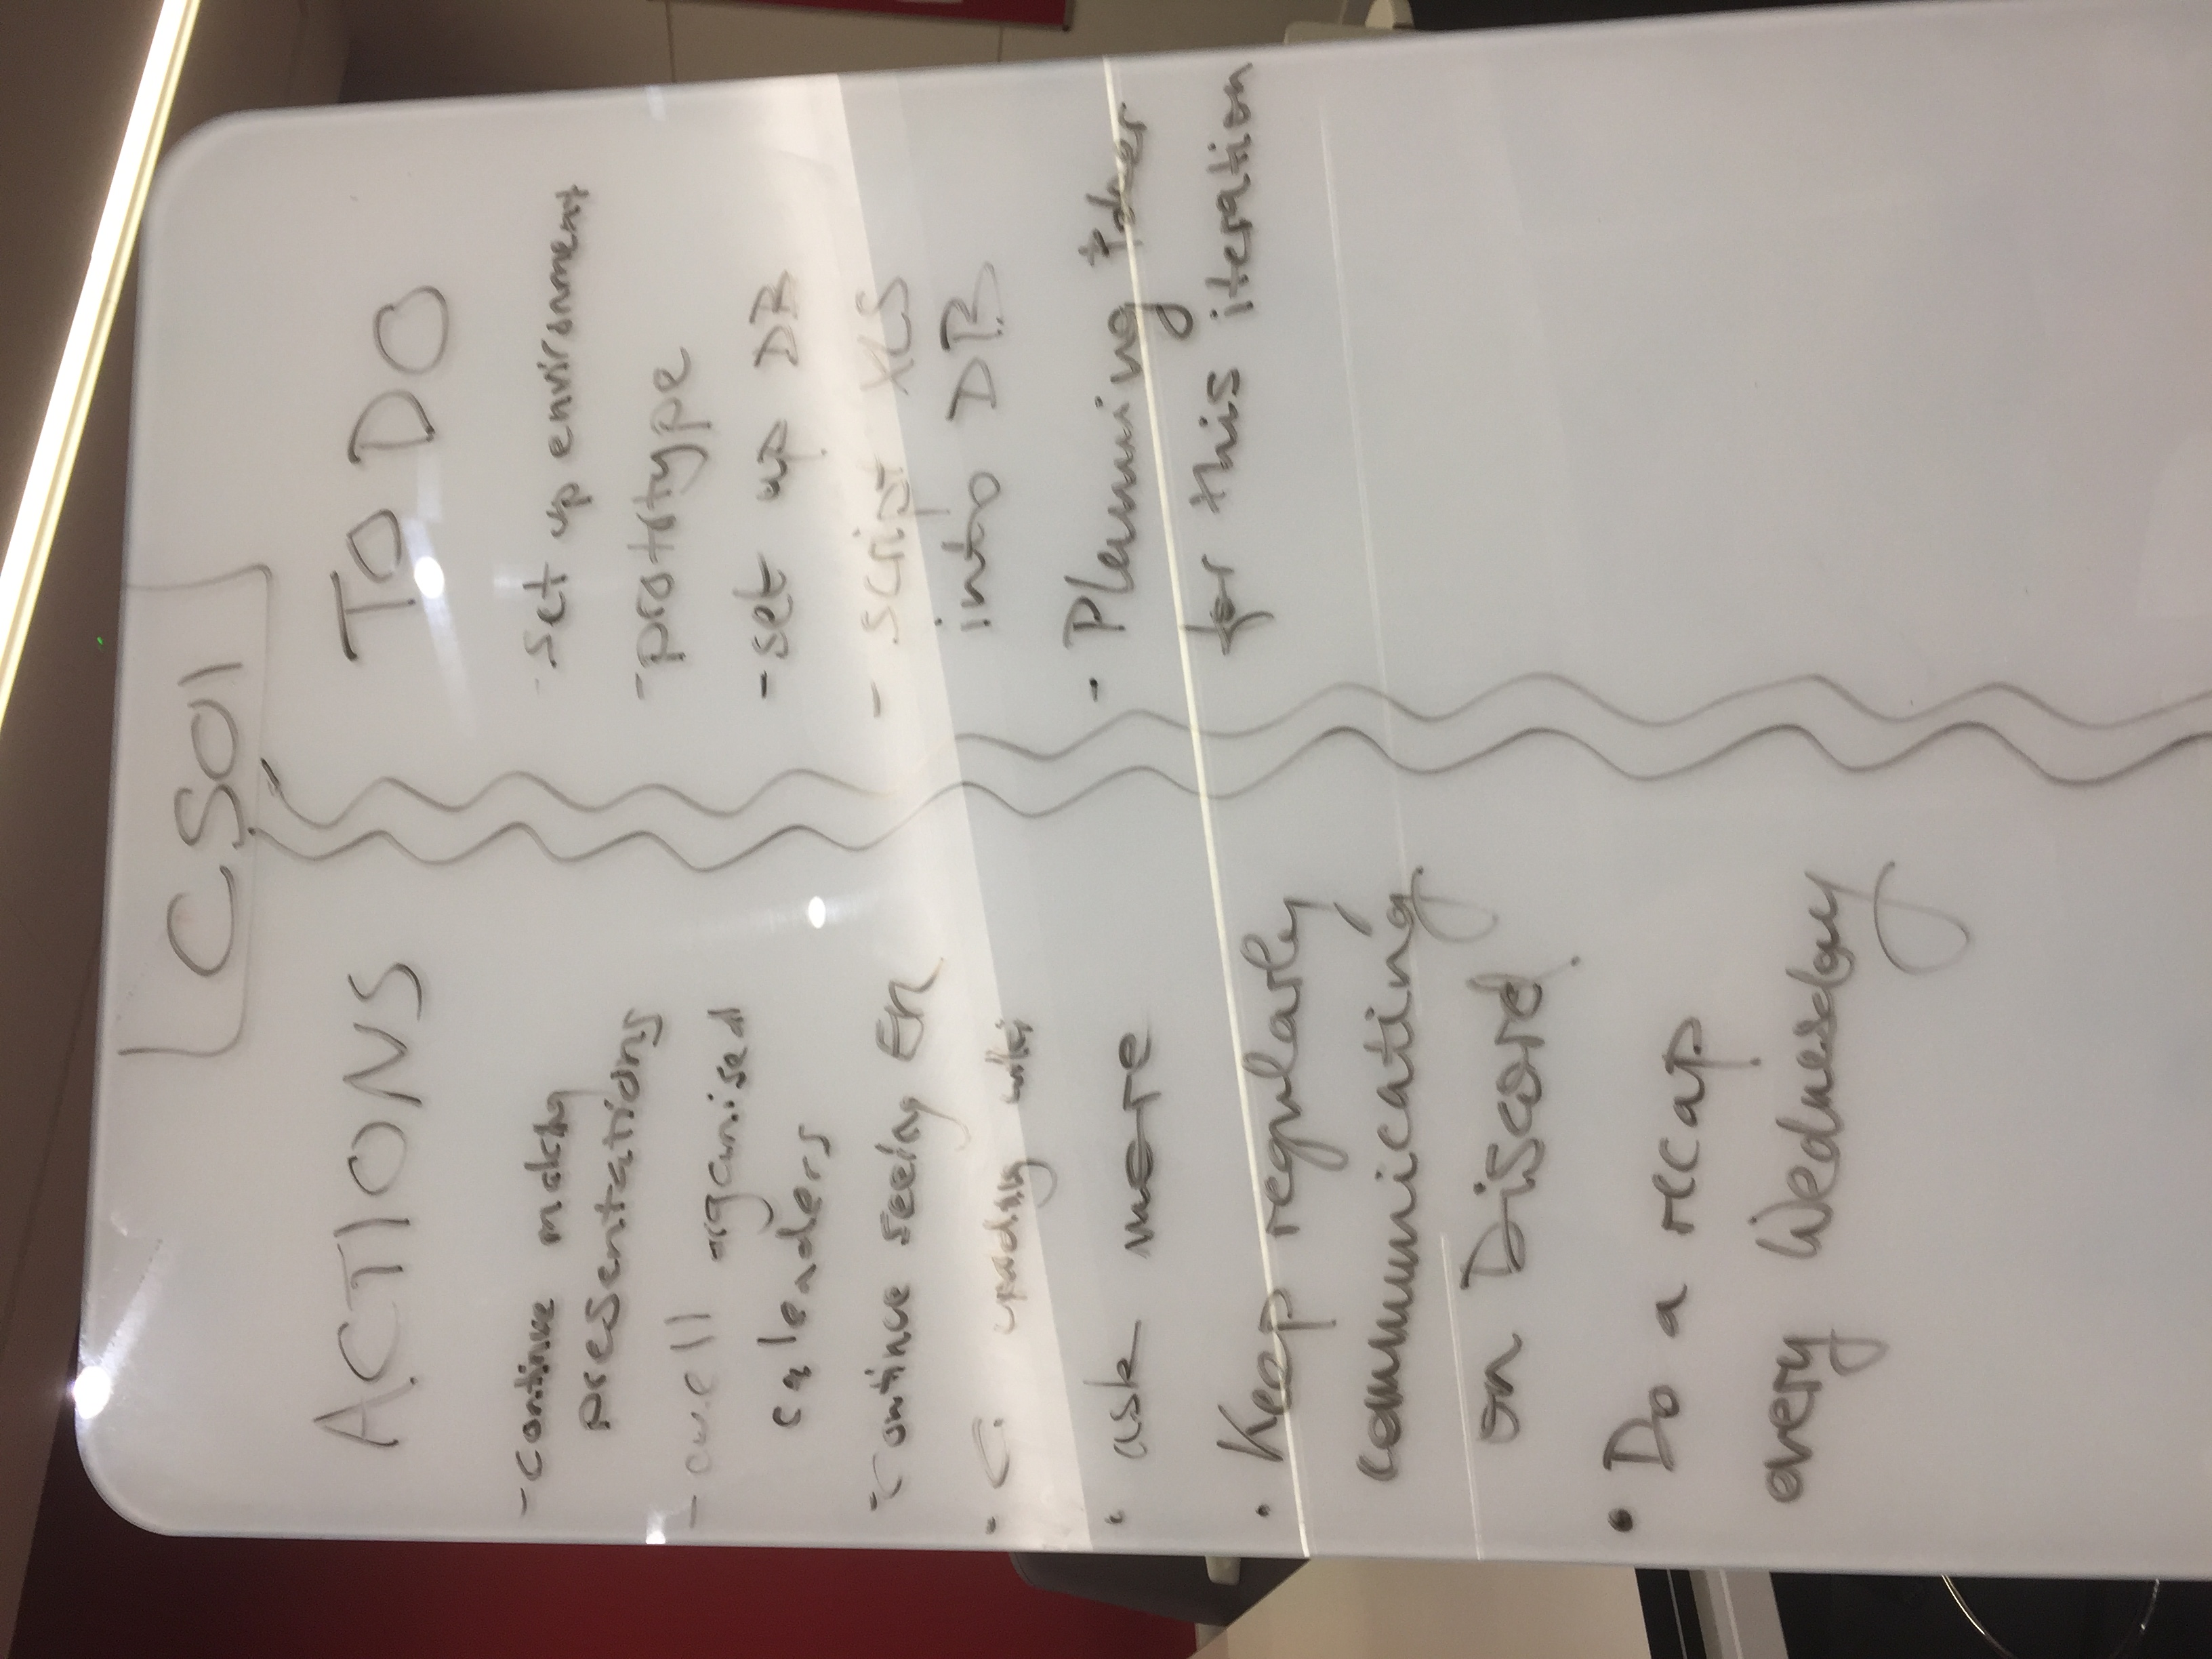 CS01
ACTIONS
- continue making
presentations
- well organised
calenders
- Continue seeing
- C. wiki
• ask more
• Keep regularly
communicating
on Discord.
• Do a recap
every Wednesday
TO DO
- set up environment
- prototype
- set up DB
- script XLS
into DB
- Planning Poker
for this iteration